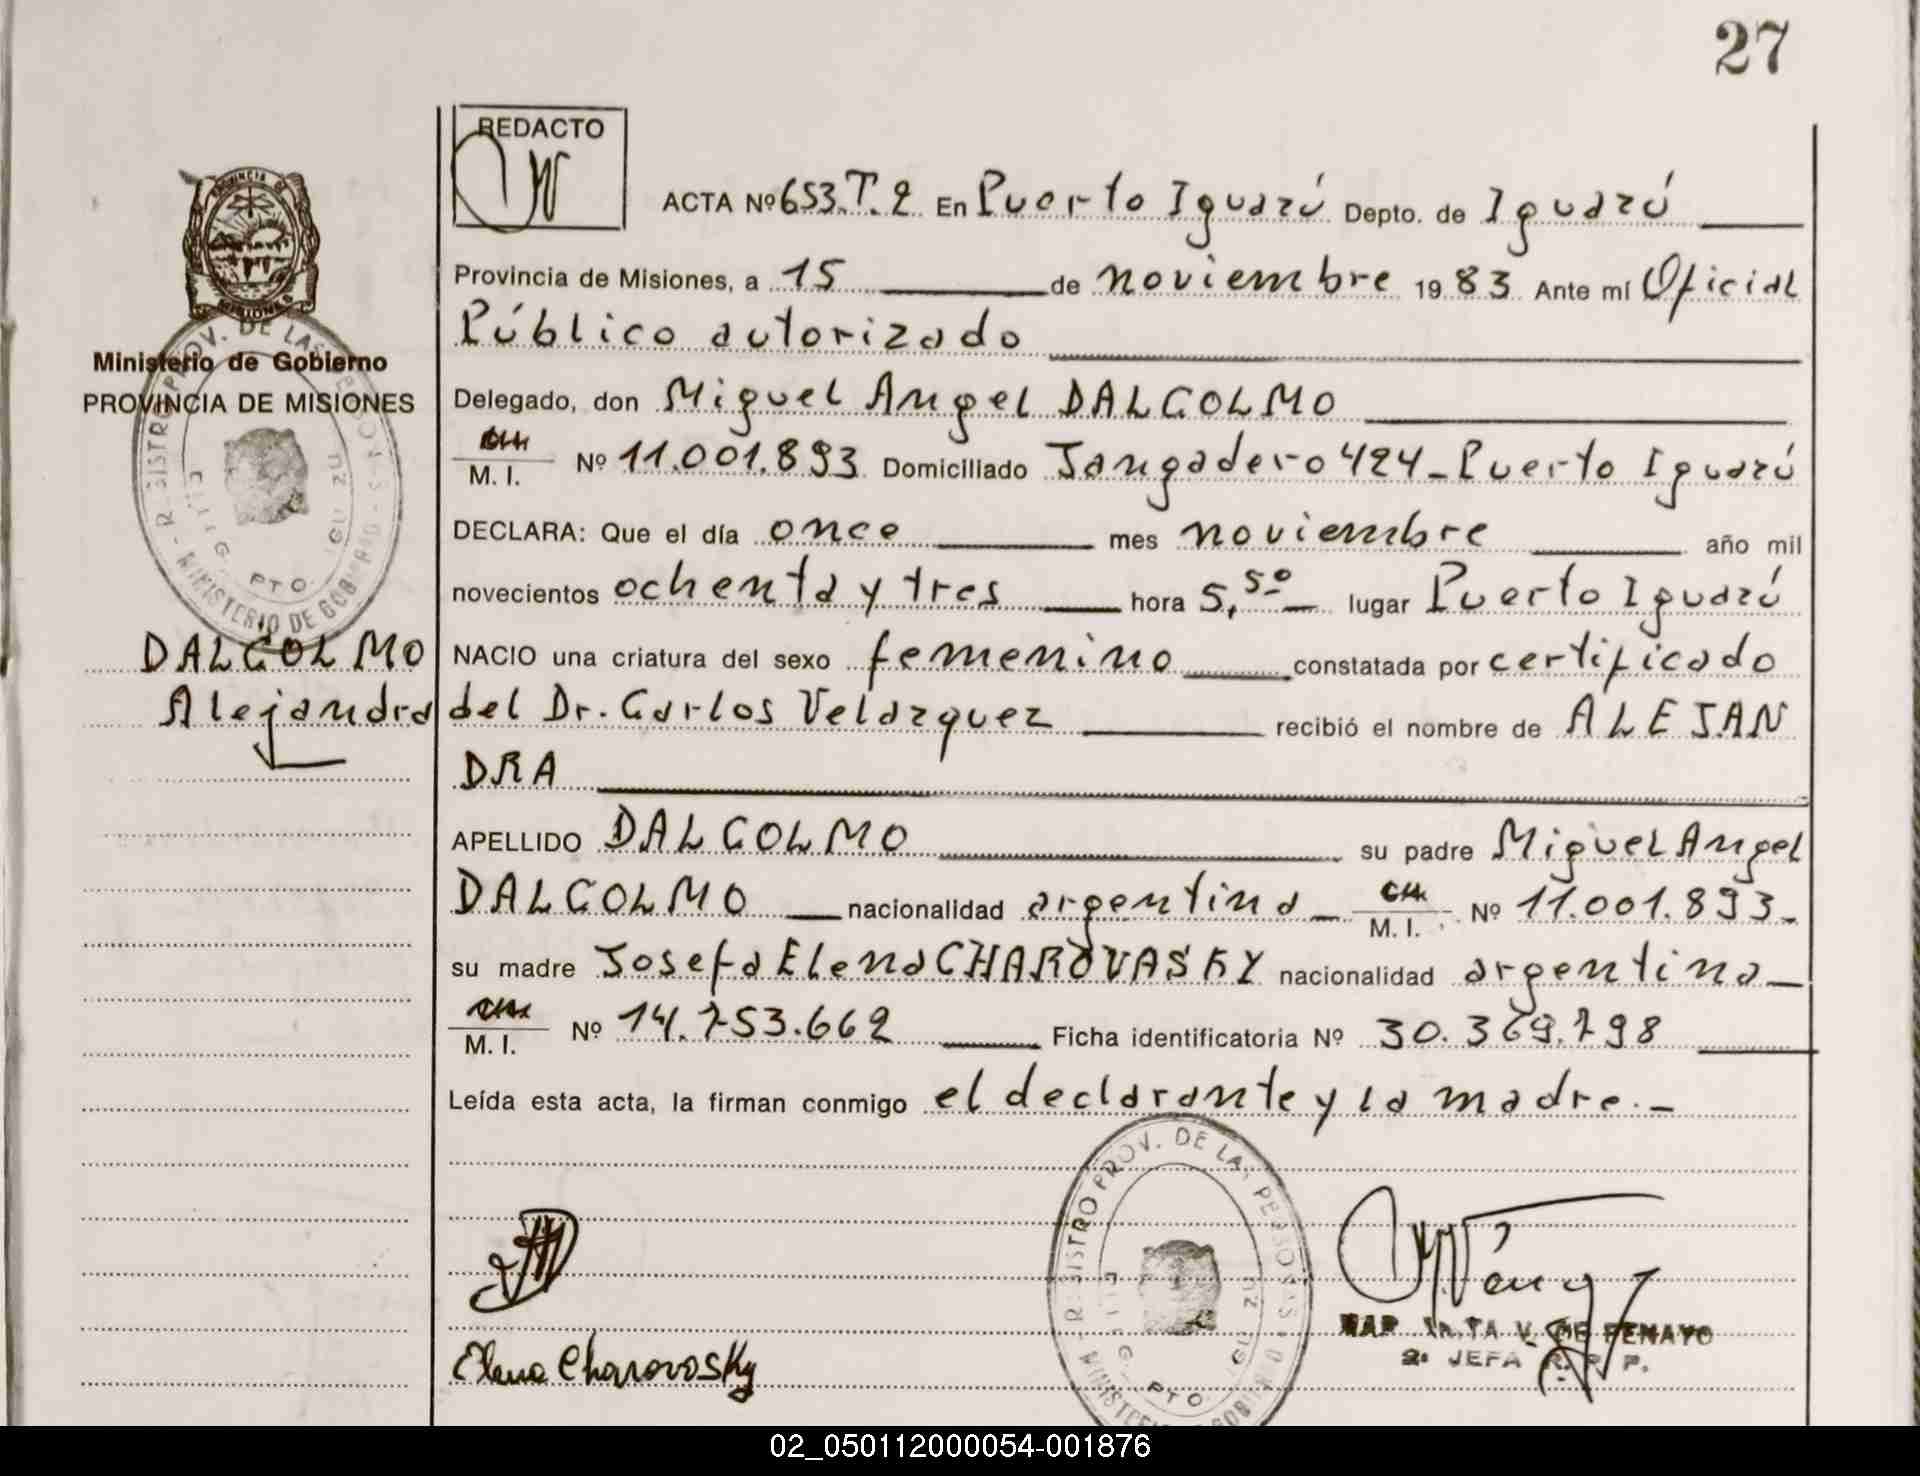 27
REDACTO
ACTA Nº 653.T.2 En Puerto Iguazú Depto. de Iguazú
Provincia de Misiones, a 15 de noviembre 1983 Ante mí Oficial
Público autorizado
Ministerio de Gobierno
PROVINCIA DE MISIONES
Delegado, don Miguel Angel DALCOLMO
M. I. Nº 11.001.893 Domiciliado Jangadero 424 - Puerto Iguazú
DECLARA: Que el día once mes noviembre año mil
novecientos ochenta y tres hora 5,50 lugar Puerto Iguazú
DALCOLMO
Alejandra
NACIO una criatura del sexo femenino constatada por certificado
del Dr. Carlos Velazquez recibió el nombre de ALEJAN
DRA
APELLIDO DALCOLMO su padre Miguel Angel
DALCOLMO nacionalidad argentina M. I. Nº 11.001.893-
su madre Josefa Elena CHAROVASKY nacionalidad argentina
M. I. Nº 14.753.662 Ficha identificatoria Nº 30.369.798
Leída esta acta, la firman conmigo el declarante y la madre.-
PROV. DE LAS PERSONAS
MINISTERIO DE GOB
PTO.
Elena Charovosky
V. DE PENAYO
2ª JEFA R. P. P.
02_050112000054-001876